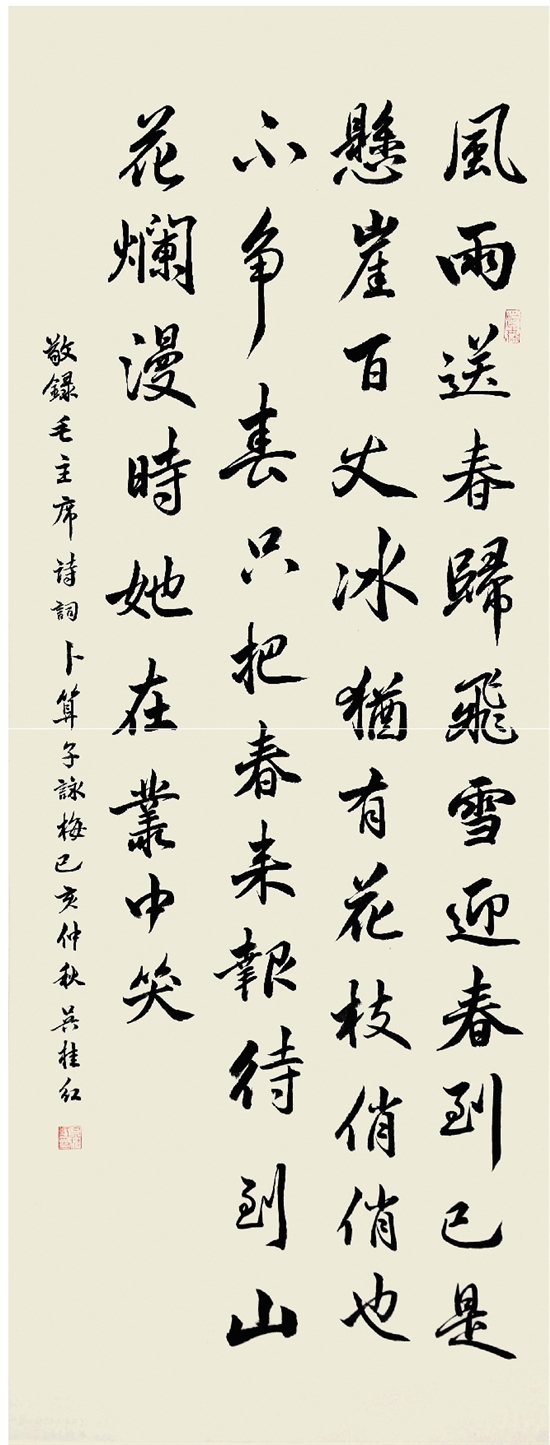 風雨送春歸飛雪迎春到已是
懸崖百丈冰猶有花枝俏俏也
不争春只把春来報待到山
花爛漫時她在叢中笑
敬録毛主席詩詞卜算子詠梅己亥仲秋吴桂红